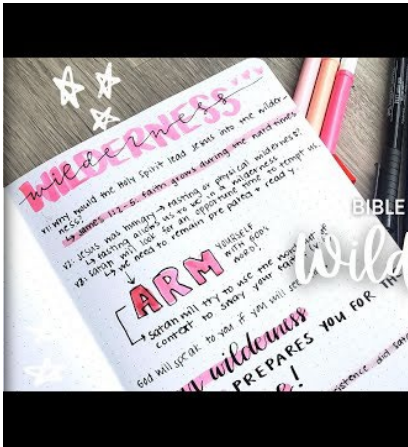 WILDERNESS
wilderness
V1: Why would the Holy Spirit lead Jesus into the wilder-
ness?
↳ James 1:2-5. Faith grows during the hard times
V2: JESUS was hungry → fasting or physical wilderness?
↳ fasting allows us to be in a wilderness
V3: Satan will look for an opportune time to tempt us.
↳ we need to remain prepared & ready.
ARM YOURSELF
WITH GODS
WORD!
↳ Satan will try to use the
context to sway your
God will speak to you if you will
wilderness
PREPARES YOU FOR
!
BIBLE
Wild